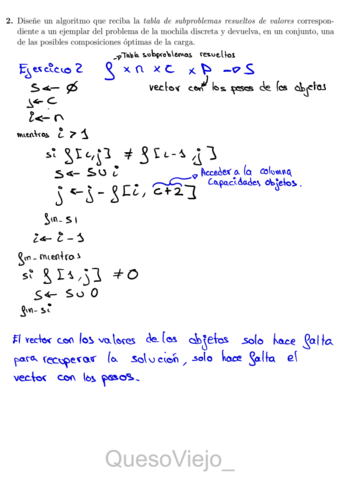 2. Diseñe un algoritmo que reciba la tabla de subproblemas resueltos de valores correspon-
diente a un ejemplar del problema de la mochila discreta y devuelva, en un conjunto, una
de las posibles composiciones óptimas de la carga.
→ Tabla subproblemas resueltos
Ejercicio 2 f x n x c x P → S
S ← ∅ vector con los pesos de los objetos
j ← c
i ← n
mientras i > 1
si f[i,j] ≠ f[i-1,j]
S ← S ∪ i → Acceder a la columna
j ← j - f[i, c+2] Capacidades objetos.
fin-si
i ← i - 1
fin-mientras
si f[1,j] ≠ 0
S ← S ∪ 0
fin-si
El vector con los valores de los objetos solo hace falta
para recuperar la solución, solo hace falta el
vector con los pesos.
QuesoViejo_